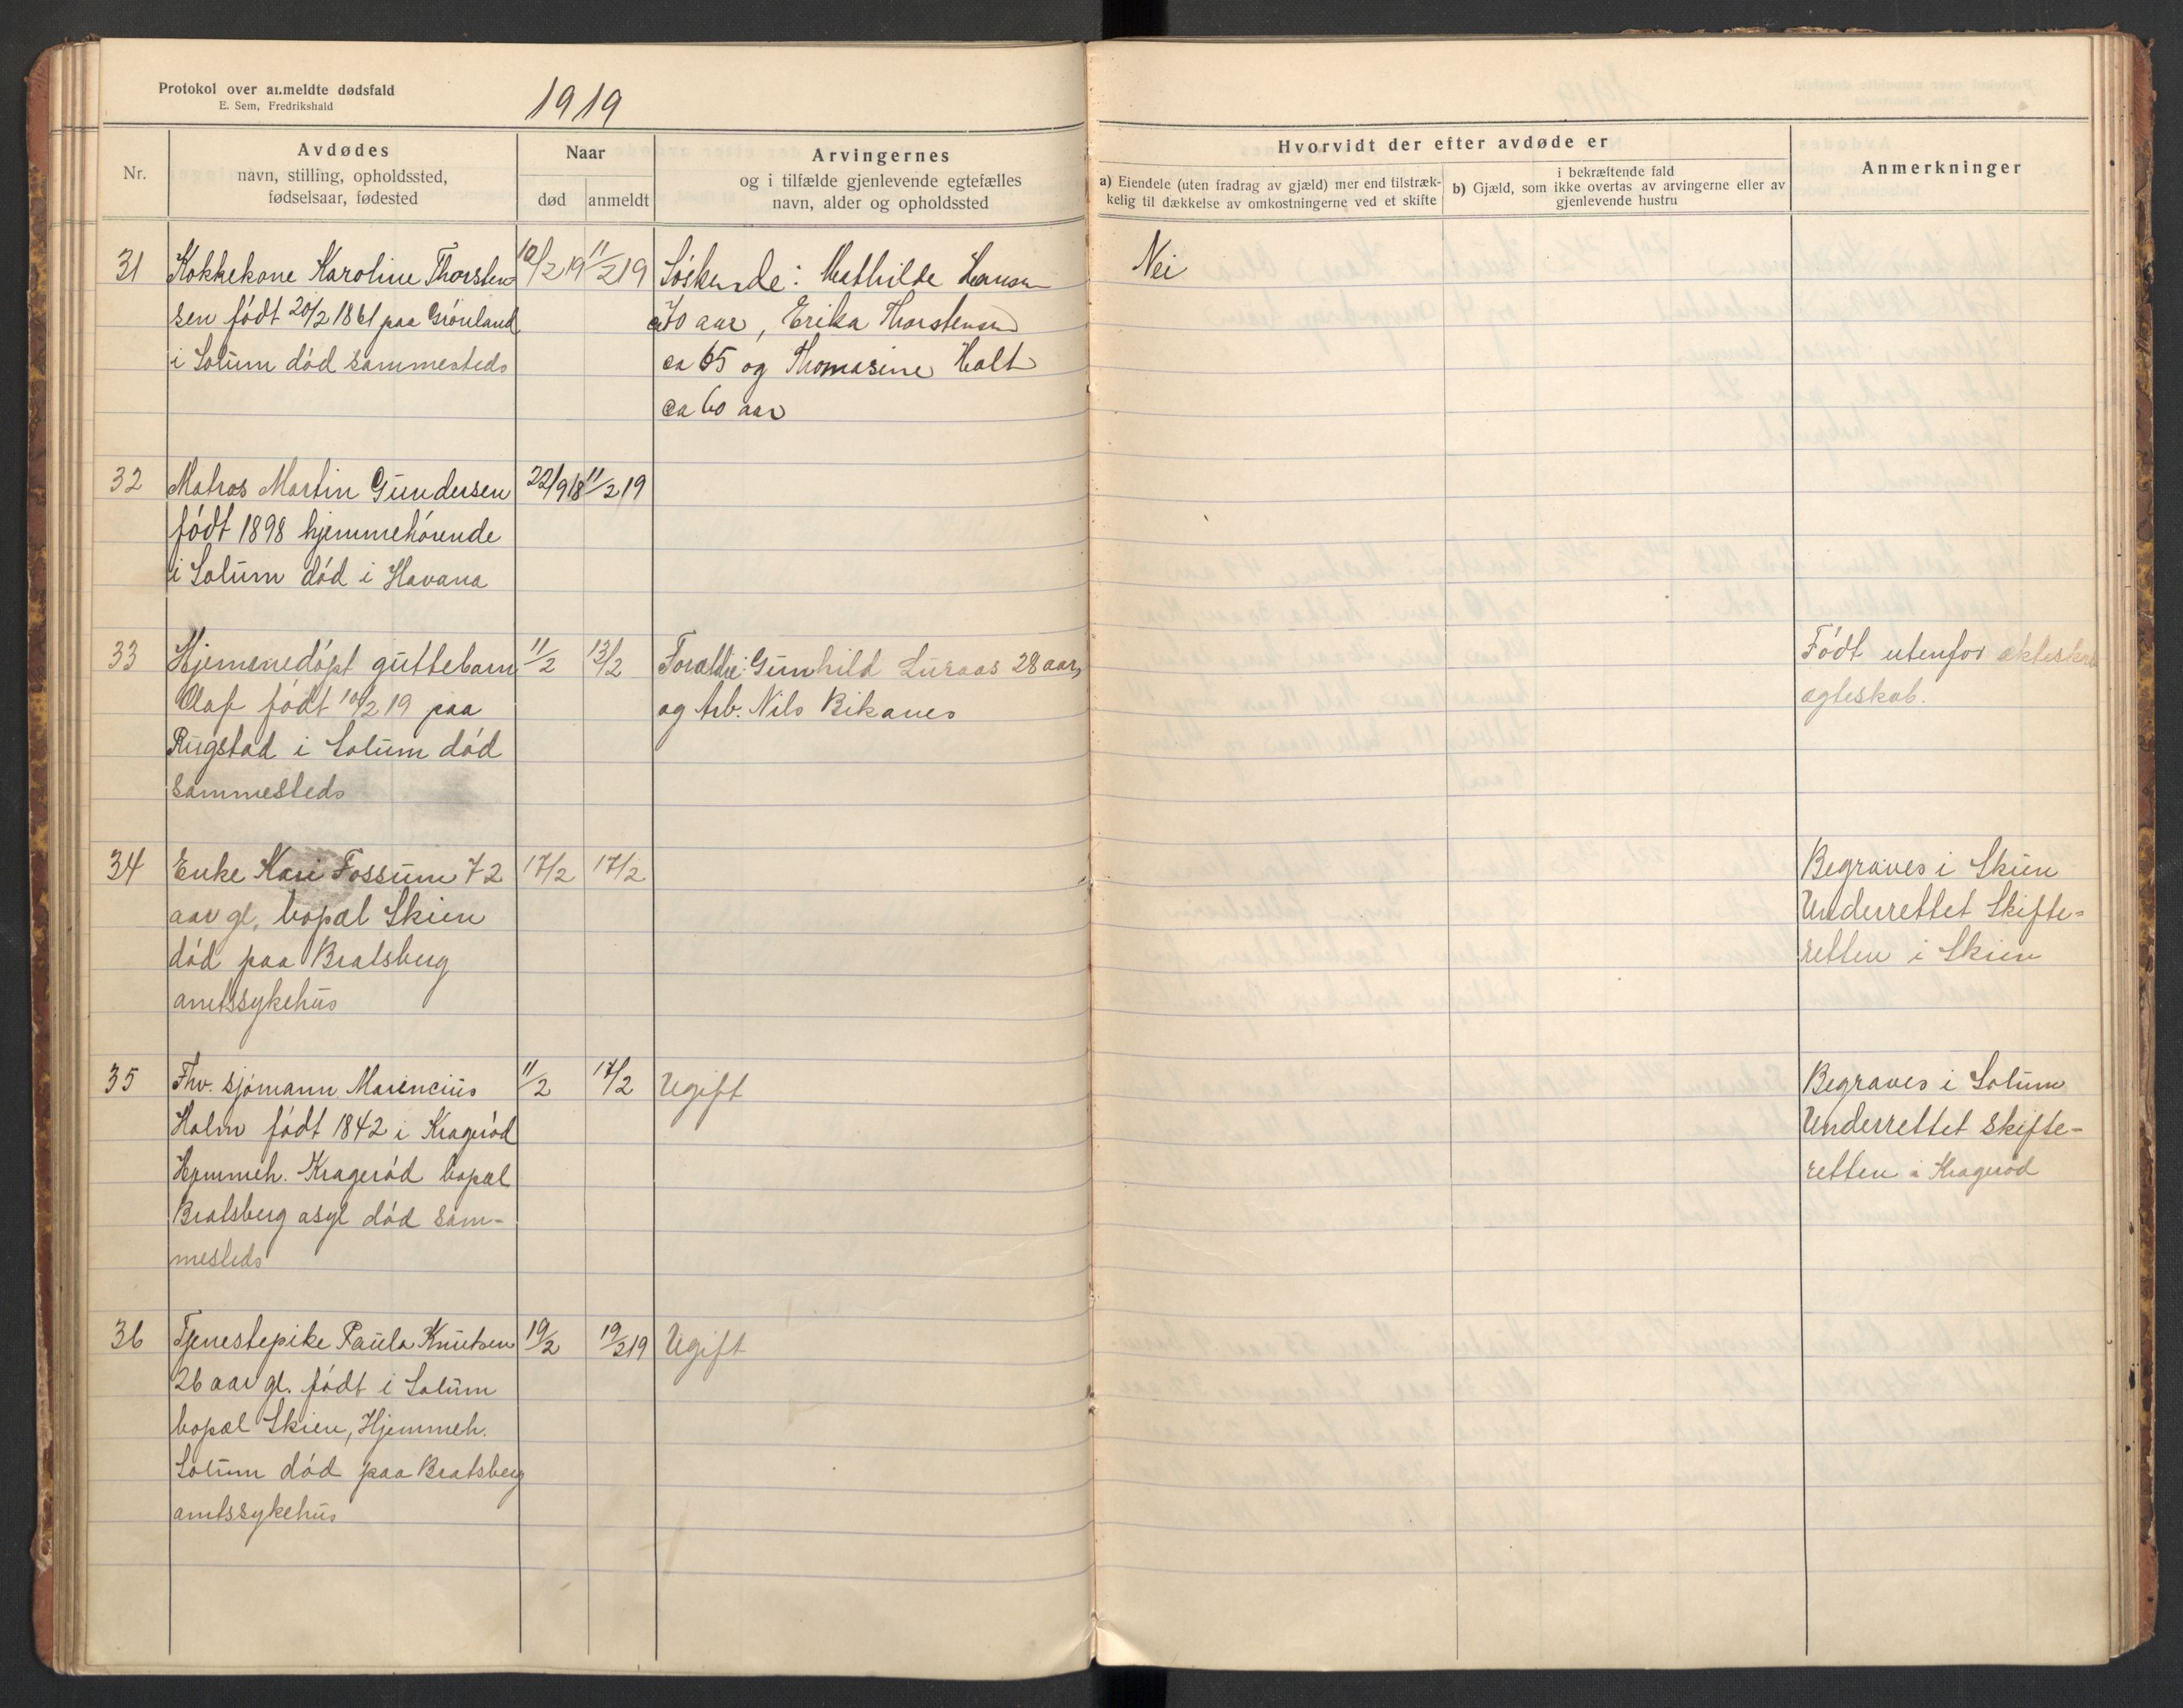 Protokol over anmeldte dødsfald
E. Sem, Fredrikshald
1919
Nr.
Avdødes
navn, stilling, opholdssted,
fødselsaar, fødested
Naar
død
anmeldt
Arvingernes
og i tilfælde gjenlevende egtefælles
navn, alder og opholdssted
Hvorvidt der efter avdøde er
a) Eiendele (uten fradrag av gjæld) mer end tilstræk-
kelig til dækkelse av omkostningerne ved et skifte
i bekræftende fald
b) Gjæld, som ikke overtas av arvingerne eller av
gjenlevende hustru
Anmerkninger
31 Kokkekone Karoline Thorsten- 10/2 19 11/2 19 Söskende: Mathilde Hansen Nei
sen født 20/2 1861 paa Grönland ca 70 aar, Erika Thorstensen
i Solum död sammesteds ca 65 og Thomasine Holt
ca 60 aar
32 Matros Martin Gundersen 22/9 18 11/2 19
född 1898 hjemmehörende
i Solum död i Havana
33 Hjemmedöpt guttebarn 11/2 13/2 Forældre: Gunhild Luraas 28 aar, Födt utenfor ekteskab
Olaf födt 10/2 19 paa og Arb. Nils Bikanes egteskab.
Rugstad i Solum död
sammesteds
34 Enke Kari Fossum 72 17/2 17/2 Begraves i Skien
aar gl. bopæl Skien Underrettet Skifte-
död paa Bratsberg retten i Skien
amtssykehus
35 Fhv. sjömann Marencius 11/2 17/2 Ugift Begraves i Solum
Holm födt 1842 i Kragerö Underrettet skifte-
Hjemmeh. Kragerö bopæl retten i Kragerö
Bratsberg asyl död sam-
mesteds
36 Tjenestepike Paula Knutsen 19/2 19/2 19 Ugift
26 aar gl. födt i Solum
bopæl Skien, Hjemmeh.
Solum död paa Bratsberg
amtssykehus